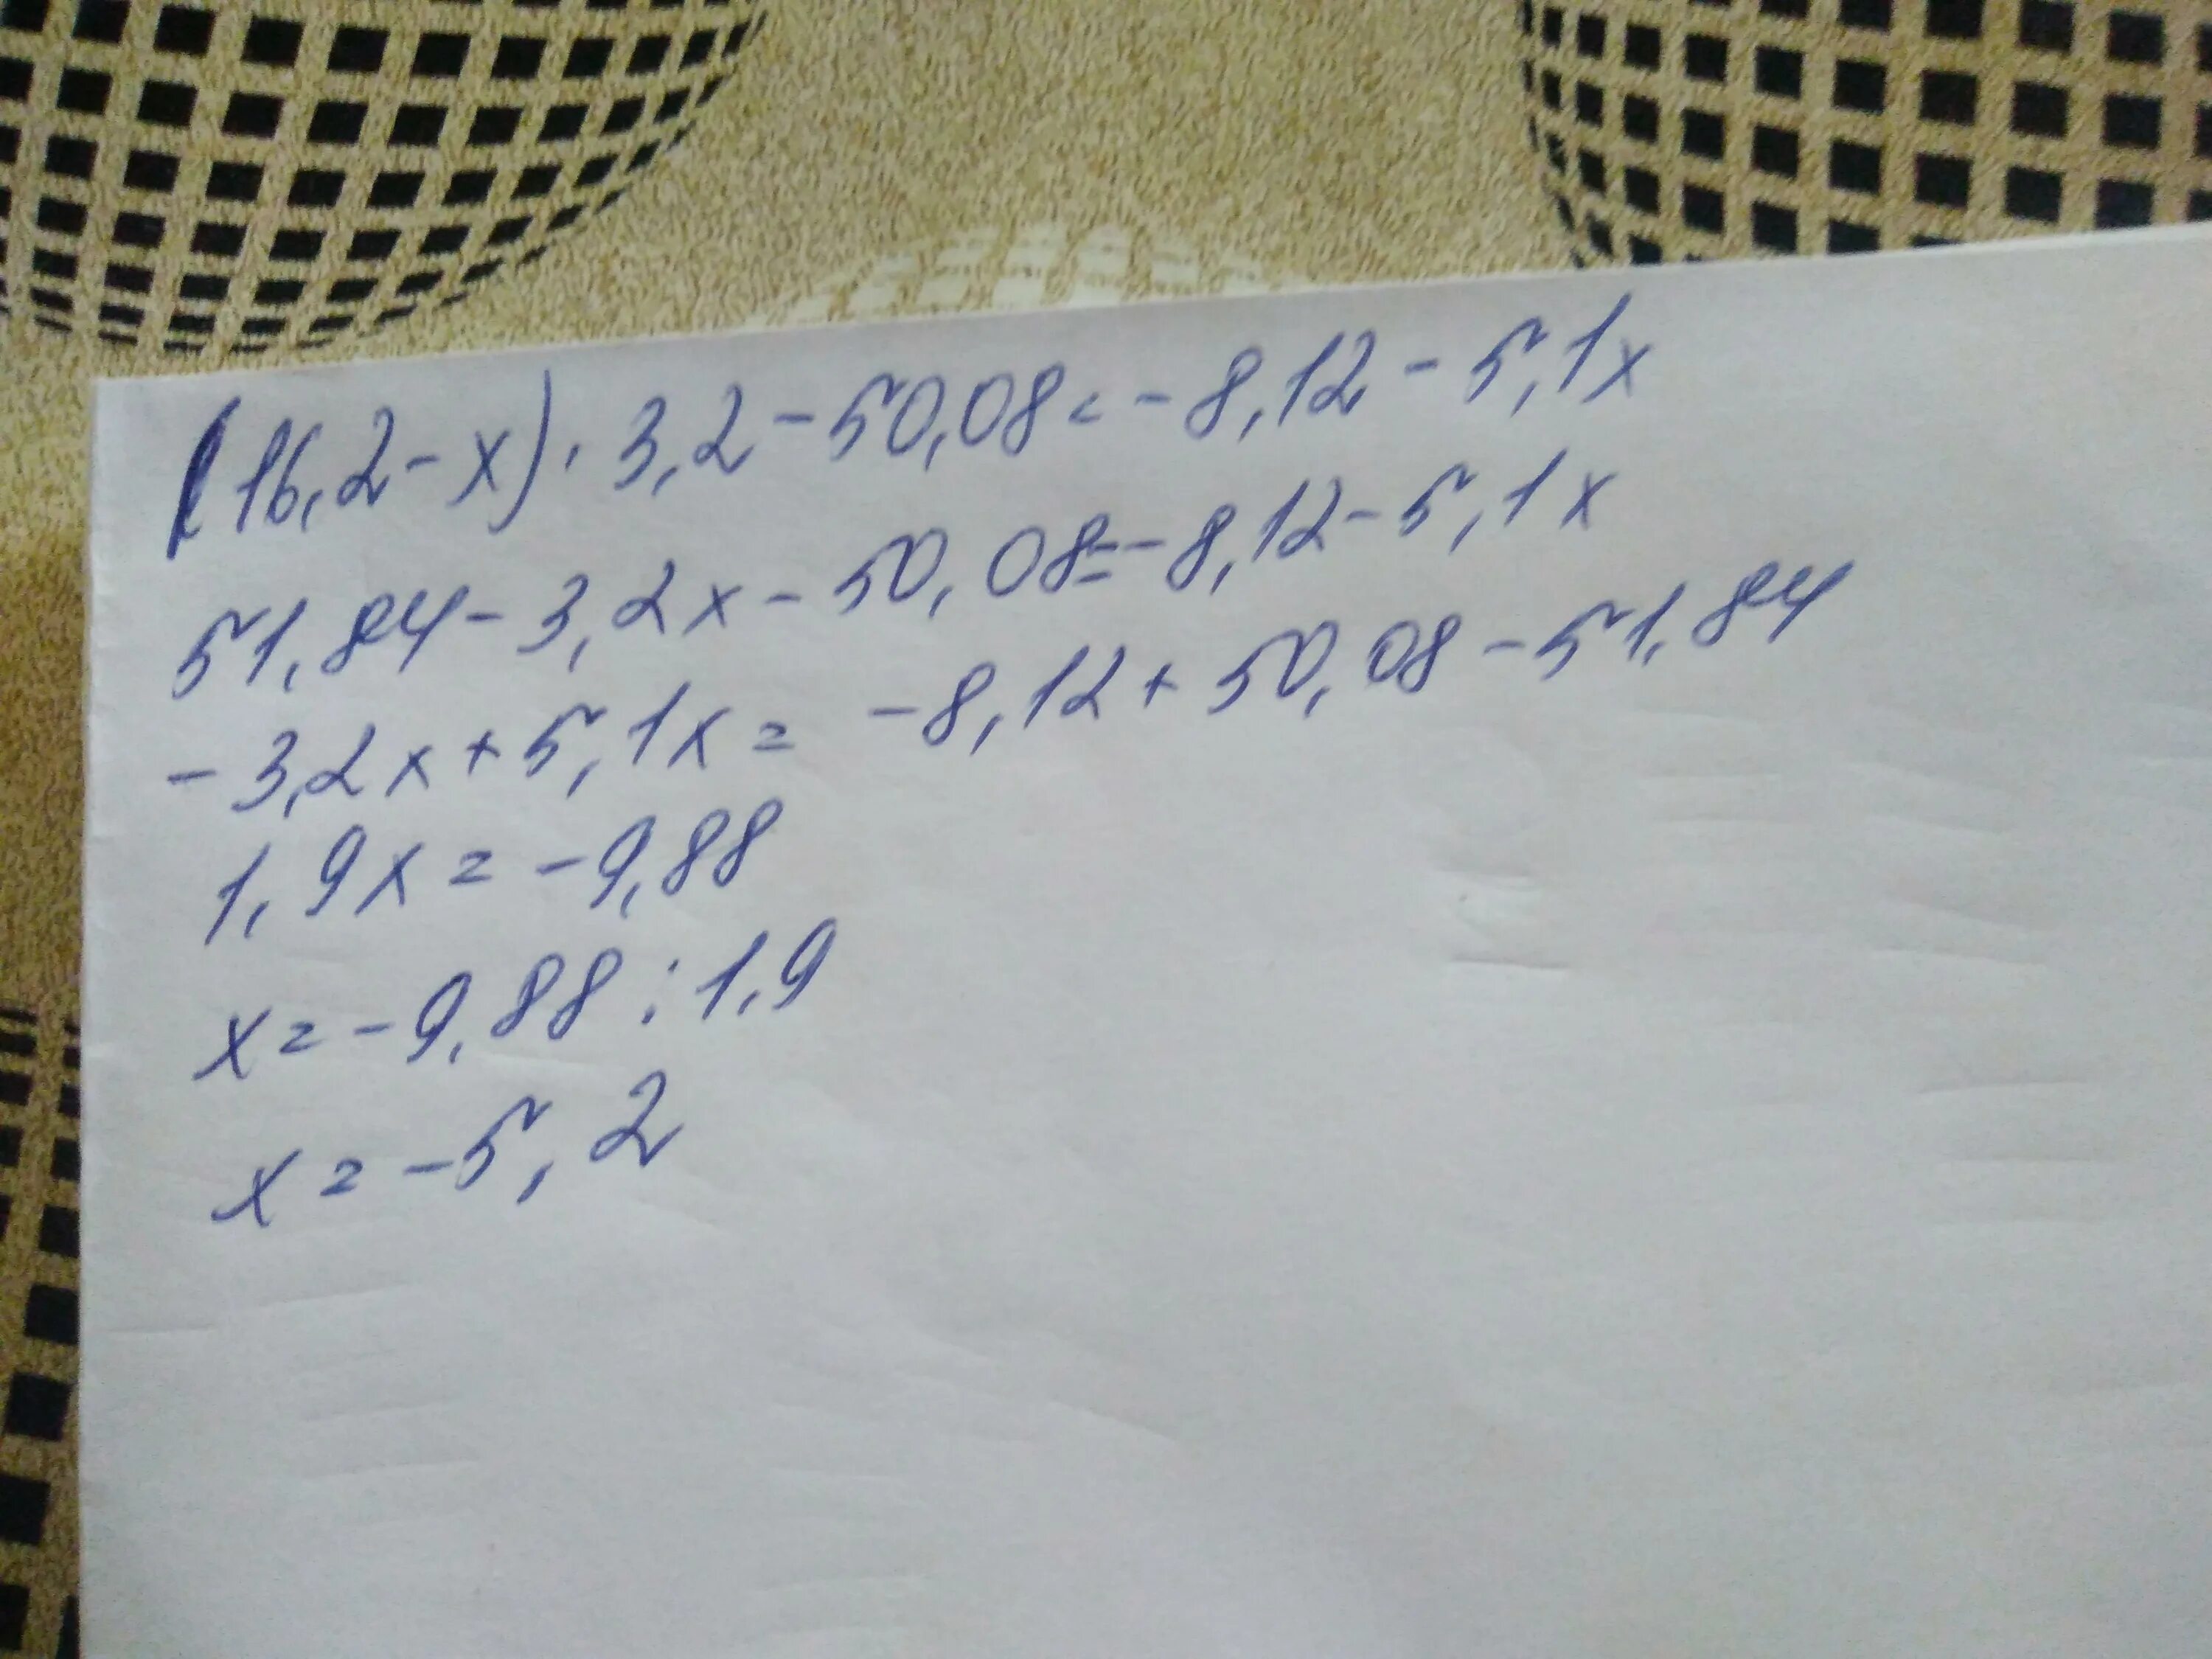 (16,2-x)·3,2-50,08=-8,12-5,1x
51,84-3,2x-50,08=-8,12-5,1x
-3,2x+5,1x=-8,12+50,08-51,84
1,9x=-9,88
x=-9,88:1,9
x=-5,2